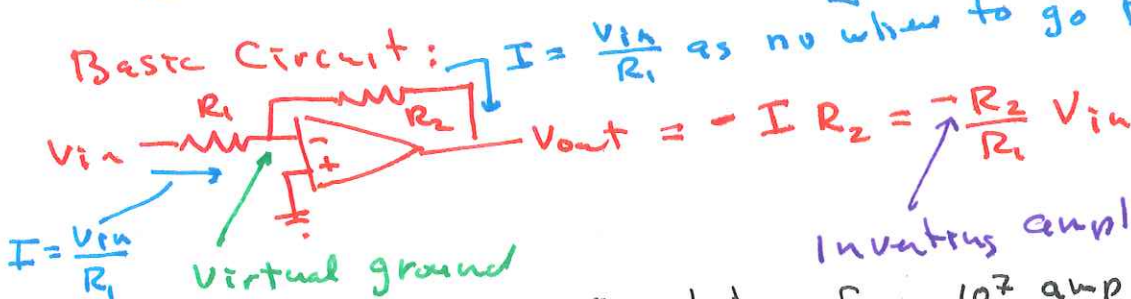 Basic Circuit: I = Vin/R1 as no where to go
R1
R2
Vin
-
+
Vout = - I R2 = -R2/R1 Vin
I = Vin/R1
Virtual ground
Inverting ampl
10^7 amp